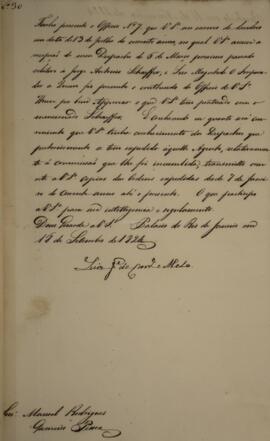 Nº 30
Tenho presente o Officio Nº 7 que VSª me enviou de Londres
em data de 13 de Julho do corrente anno, no qual VSª accusa a
recepção do meu Despacho de 5 de Maio proximo passado
relativo a Jorge Antonio Schaffer, e Sua Magestade O Imperador
a Quem foi presente o conteudo do Officio de VSª
Houve por bem Approvar o que VSª tem praticado com o
mencionado Schaffer. E sendo quanto
que VSª tenha conhecimento dos Despachos que
posteriormente se tem expedido áquelle Agente, relativamente
á commissão que lhe foi incumbida, transmitto
a VSª copias das Ordens expedidas desde 7 de Janeiro
do corrente anno até o presente. O que participo
a VSª para sua intelligencia e regulamento.
Deos Guarde a VSª. Palacio do Rio de Janeiro em
15 de Setembro de 1824
Luiz Jé de Carvº e Mello.
Snr. Manoel Rodrigues
Gameiro Pessoa